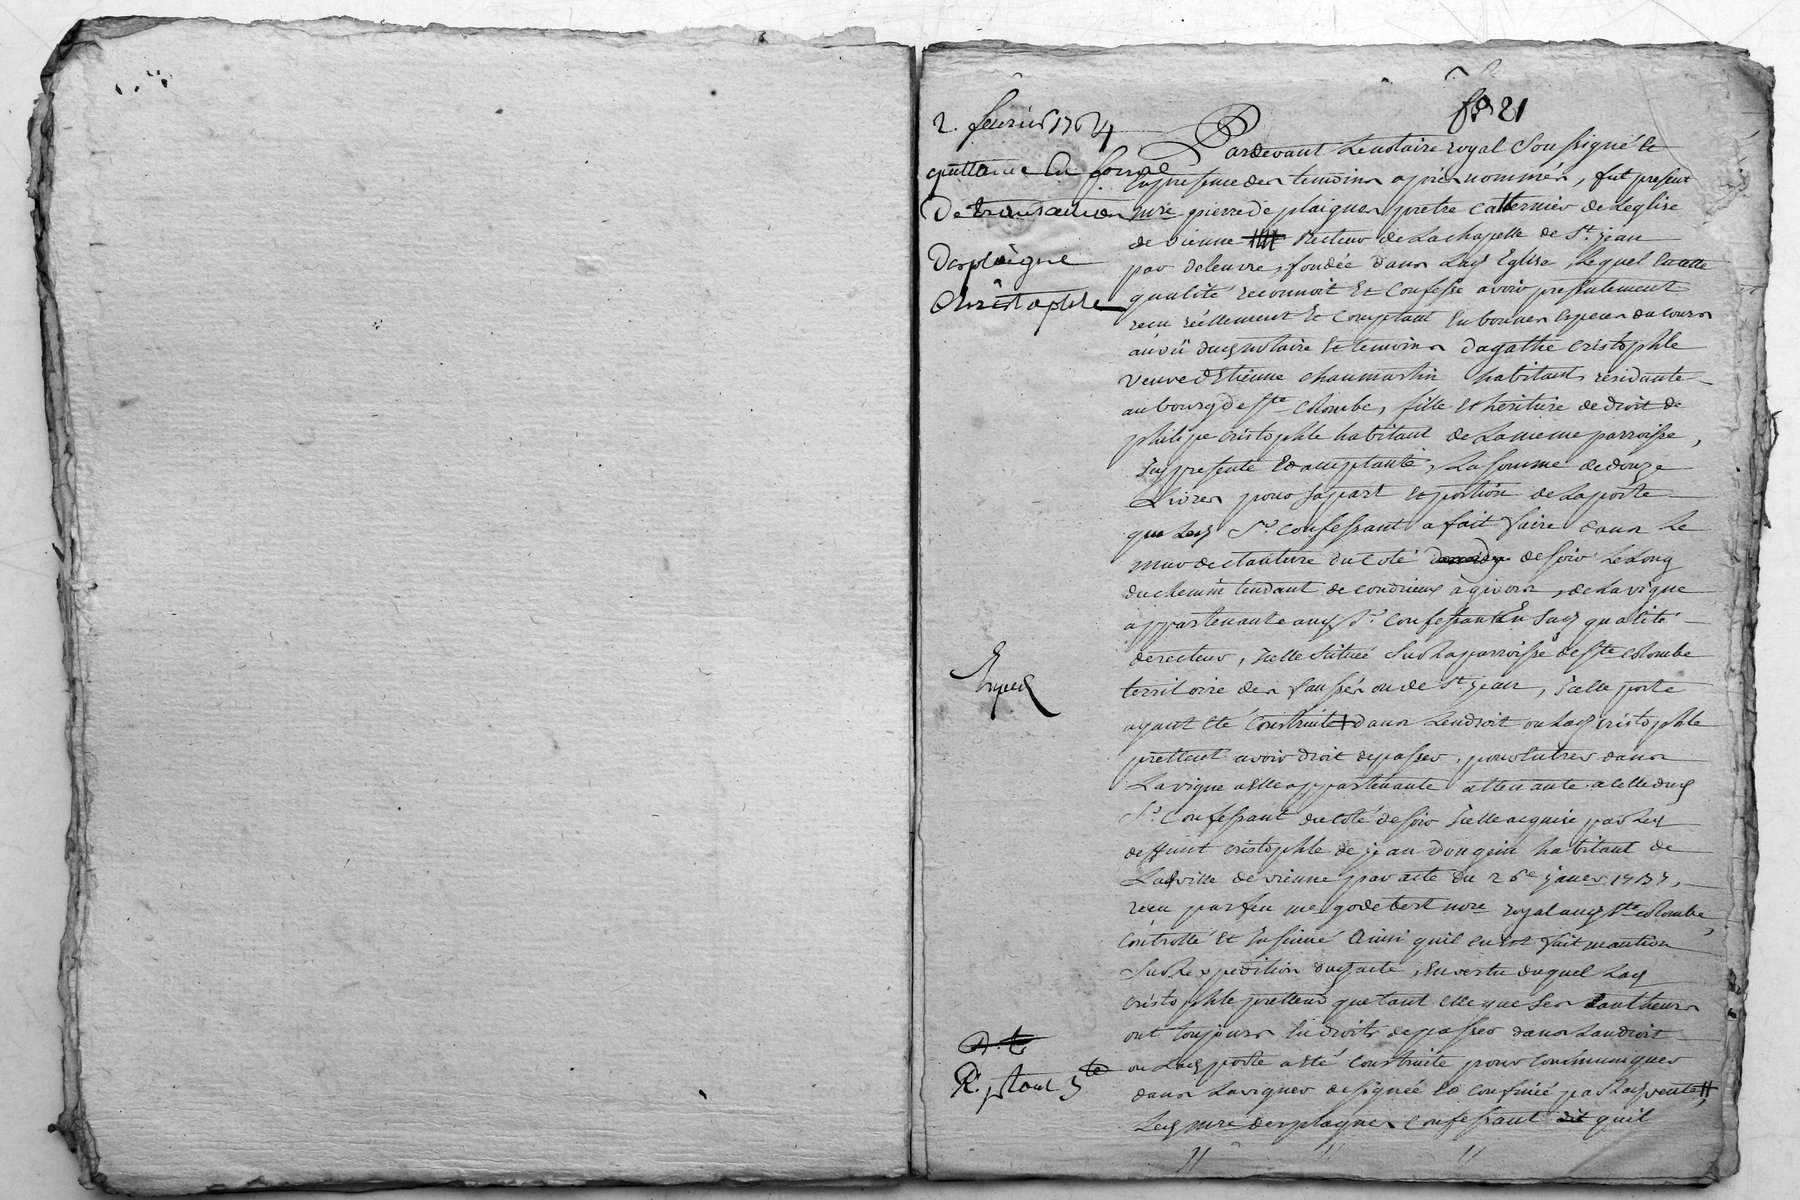 fo 21
2. fevrier 1764
quittance en forme
De transaction
Desplaigne
Christophle
Expedié
Pardevant le notaire royal soussigné et
en presence des temoins apres nommés, fut present
mre pierre de plaignes pretre de Leglise
de vienne recteur de La chapelle de St. jean
par deleuvre, fondée dans Lad Eglise, Lequel en cette
qualité reconnoit Et Confesse avoir presentement
recu réellement Et comptant En bonnes especes du cours
au vü dud notaire Et temoins d'agathe cristophle
veuve d'Etienne chaumartin habitant residante
au bourg de Ste colombe, fille Et heritiere de droit de
philipe cristophle habitant de La meme parroisse,
Icy presente Et acceptante, La somme de douze
Livres pour sa part et portion de La porte
que Led Sr. confessant a fait faire dans Le
mur de clauture du coté de soir Le Long
du chemin tendant de condrieux a givors, de La vigne
appartenante aud Sr. confessant En sad qualité
de recteur, Icelle scituée sur La parroisse de Ste colombe
territoire des ou de St jean, Icelle porte
ayant eté construite dans Lendroit ou Lad cristophle
prettent avoir droit de passer, pour entrer dans
La vigne a Elle appartenante attenante a celle dud
Sr. Confessant du coté de soir Icelle acquise par Led
deffunt cristophle de jean dongein habitant de
Lad ville de vienne par acte du 26e janer 1737,
recu par feu me godebert nore royal aud Ste colombe,
controllé Et Insinué Ainsi quil en est fait mantion
sur Lexpedition dud acte, En vertu duquel Lad
cristophle prettend que tant elle que ses autheurs
ont toujours Eu droit de passer dans Landroit
ou Lad porte a eté construite pour communiquer
dans La vigne designée Et confinée par Lad vente
Led mre desplaignes confessant dit quil